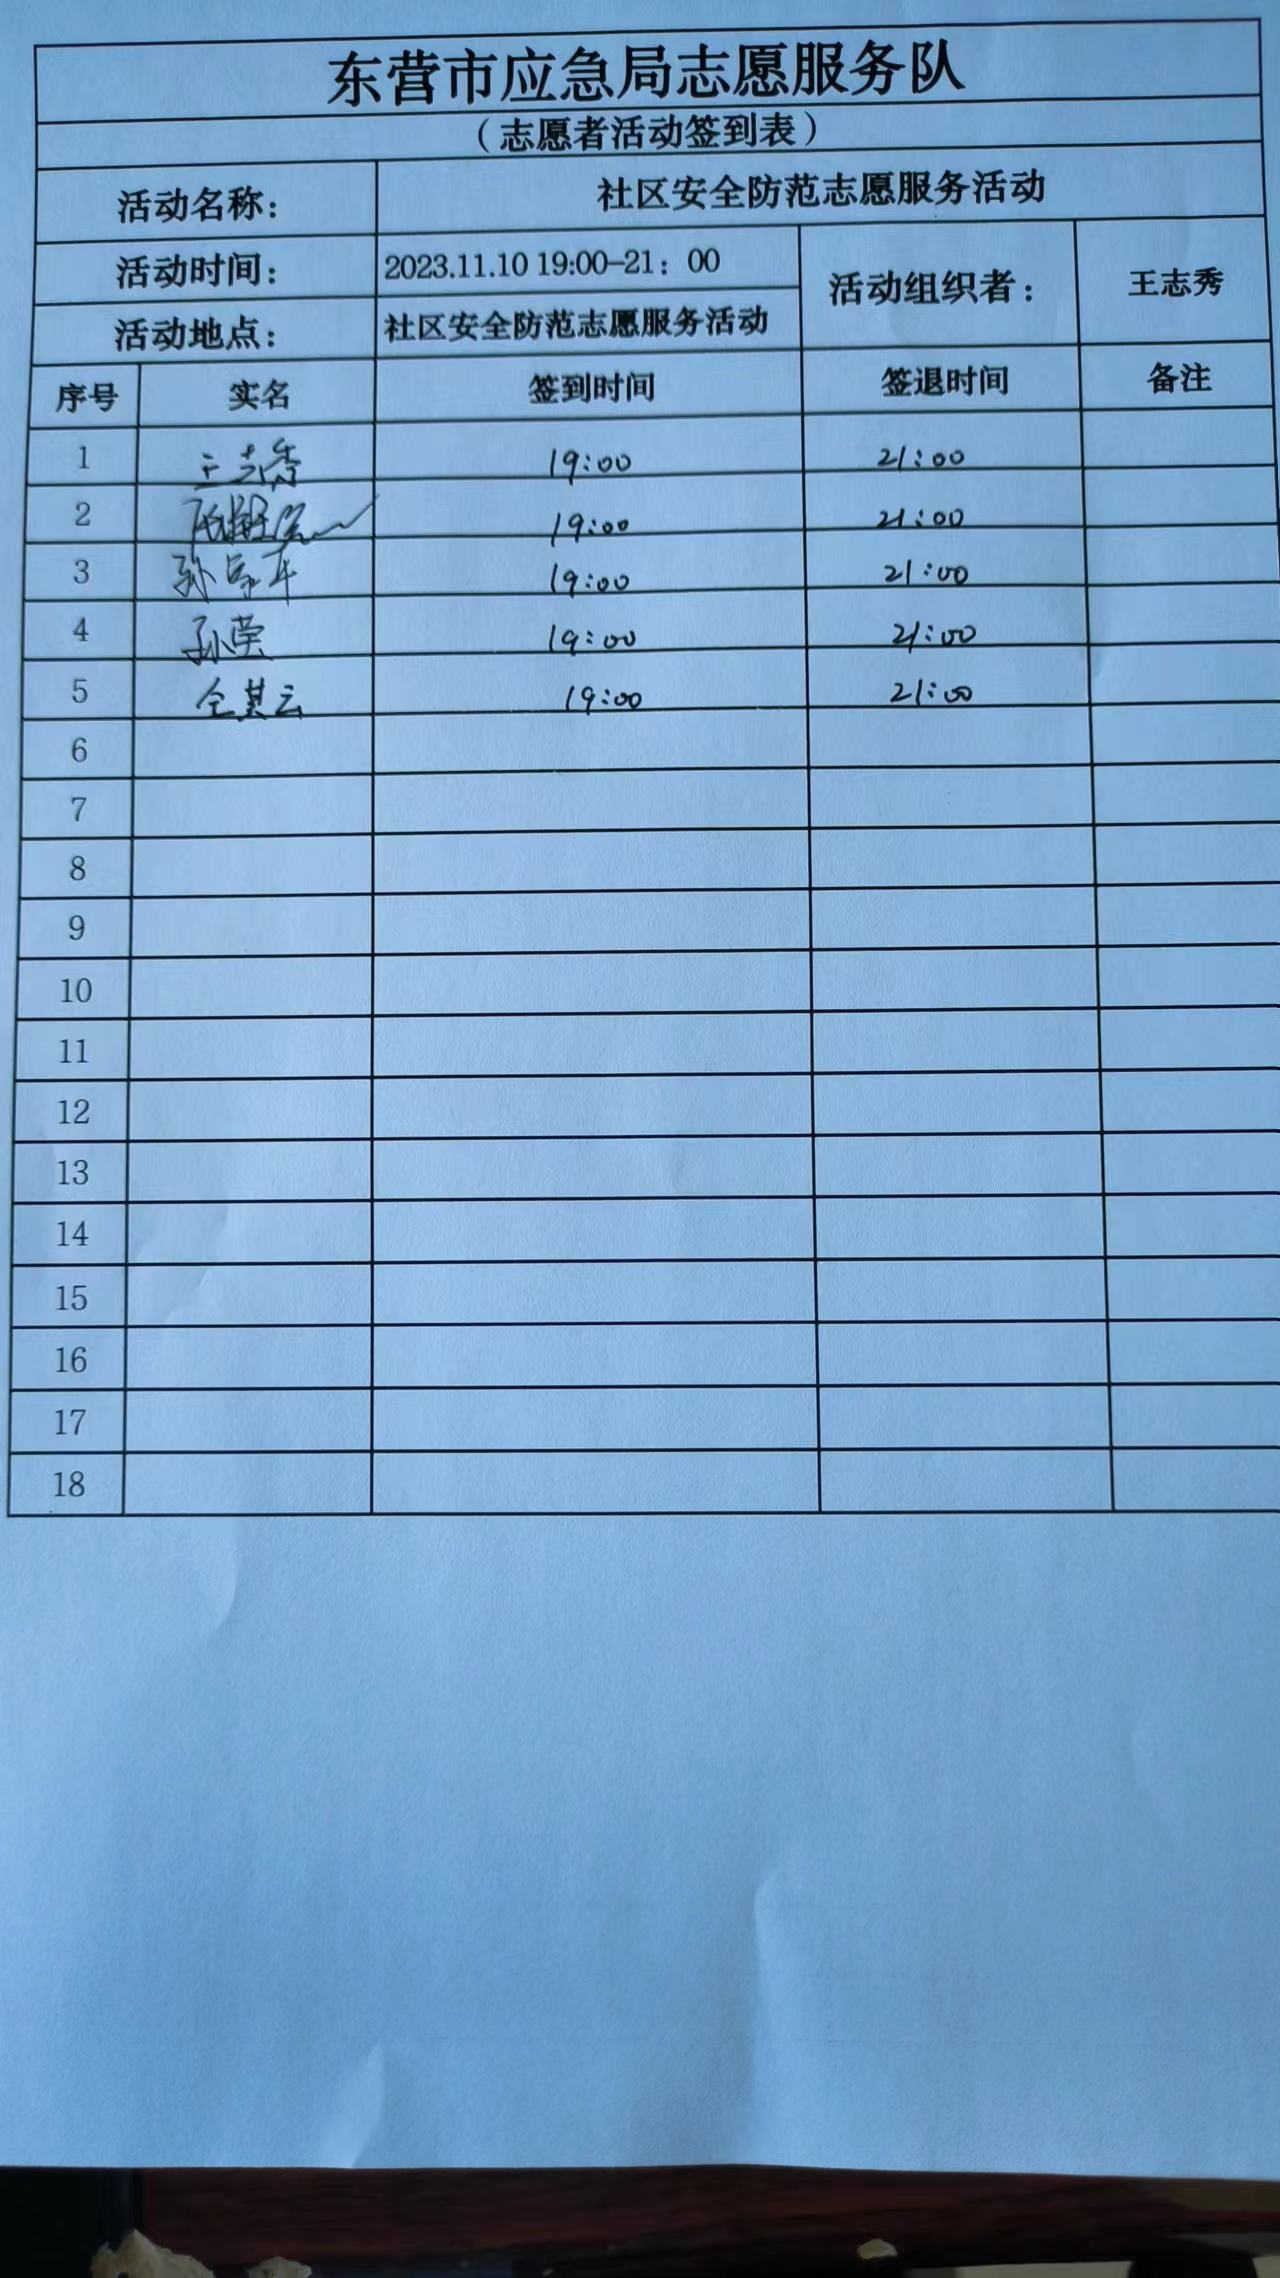 东营市应急局志愿服务队
（志愿者活动签到表）
活动名称： 社区安全防范志愿服务活动
活动时间： 2023.11.10 19:00-21：00 活动组织者： 王志秀
活动地点： 社区安全防范志愿服务活动
序号 实名 签到时间 签退时间 备注
1 王志秀 19:00 21:00
2 19:00 21:00
3 19:00 21:00
4 孙荣 19:00 21:00
5 仝其云 19:00 21:00
6
7
8
9
10
11
12
13
14
15
16
17
18